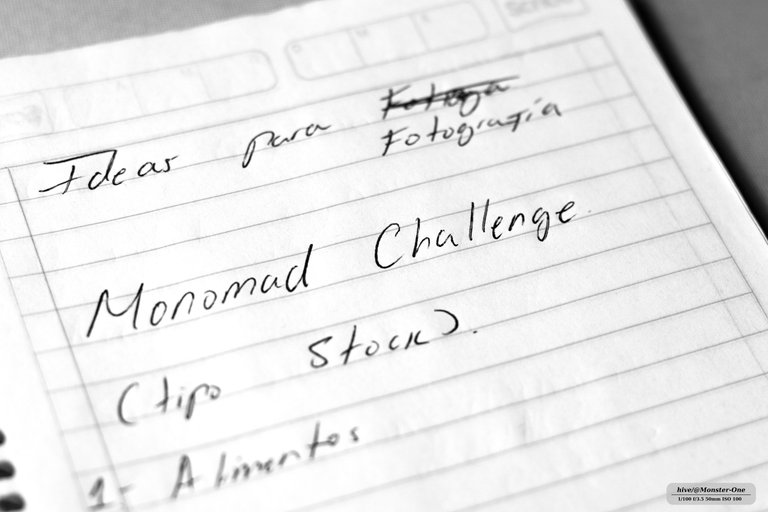 Ideas para
Fotografía
Monomad Challenge
(tipo Stock).
1- Alimentos
hive/@Monster-One
1/100 f/3.5 50mm ISO 100